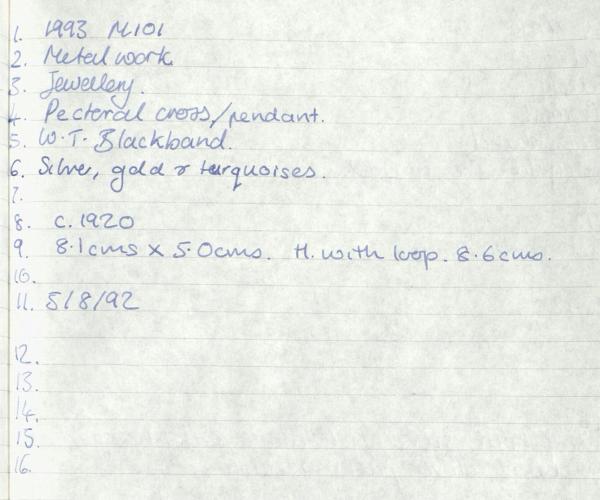 1. 1993 M101
2. Metal work
3. Jewellery.
4. Pectoral cross/pendant.
5. W.T. Blackband.
6. Silver, gold & turquoises.
7.
8. c. 1920
9. 8.1cms x 5.0cms. H. with loop. 8.6cms.
10.
11. 5/8/92
12.
13.
14.
15.
16.